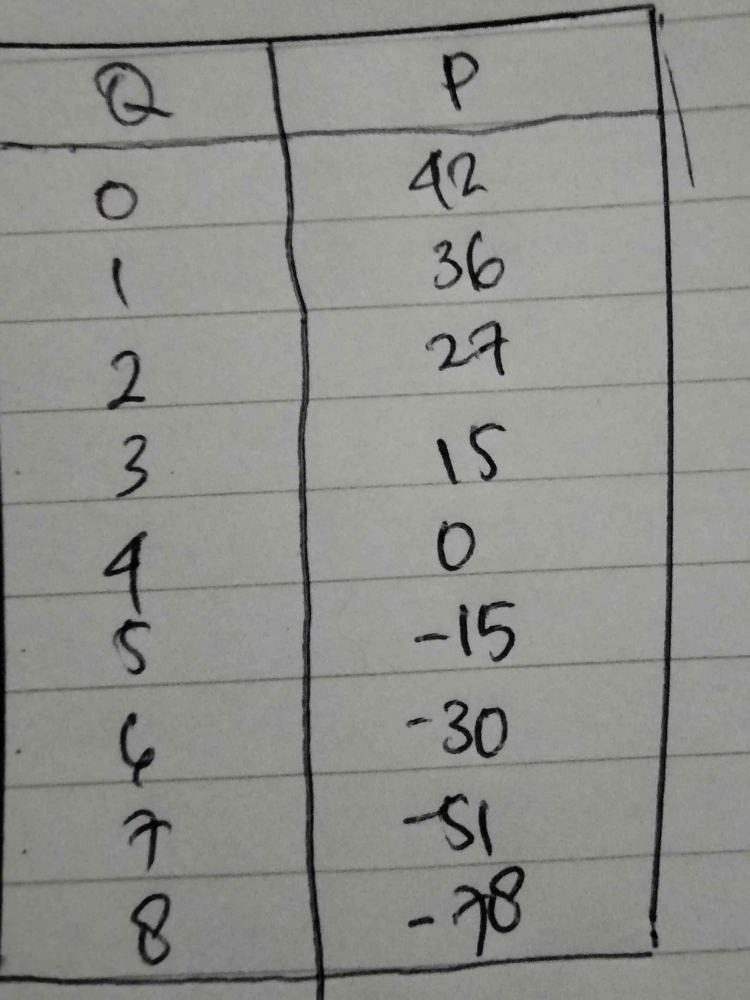 Q P
0 42
1 36
2 27
3 15
4 0
5 -15
6 -30
7 -51
8 -78